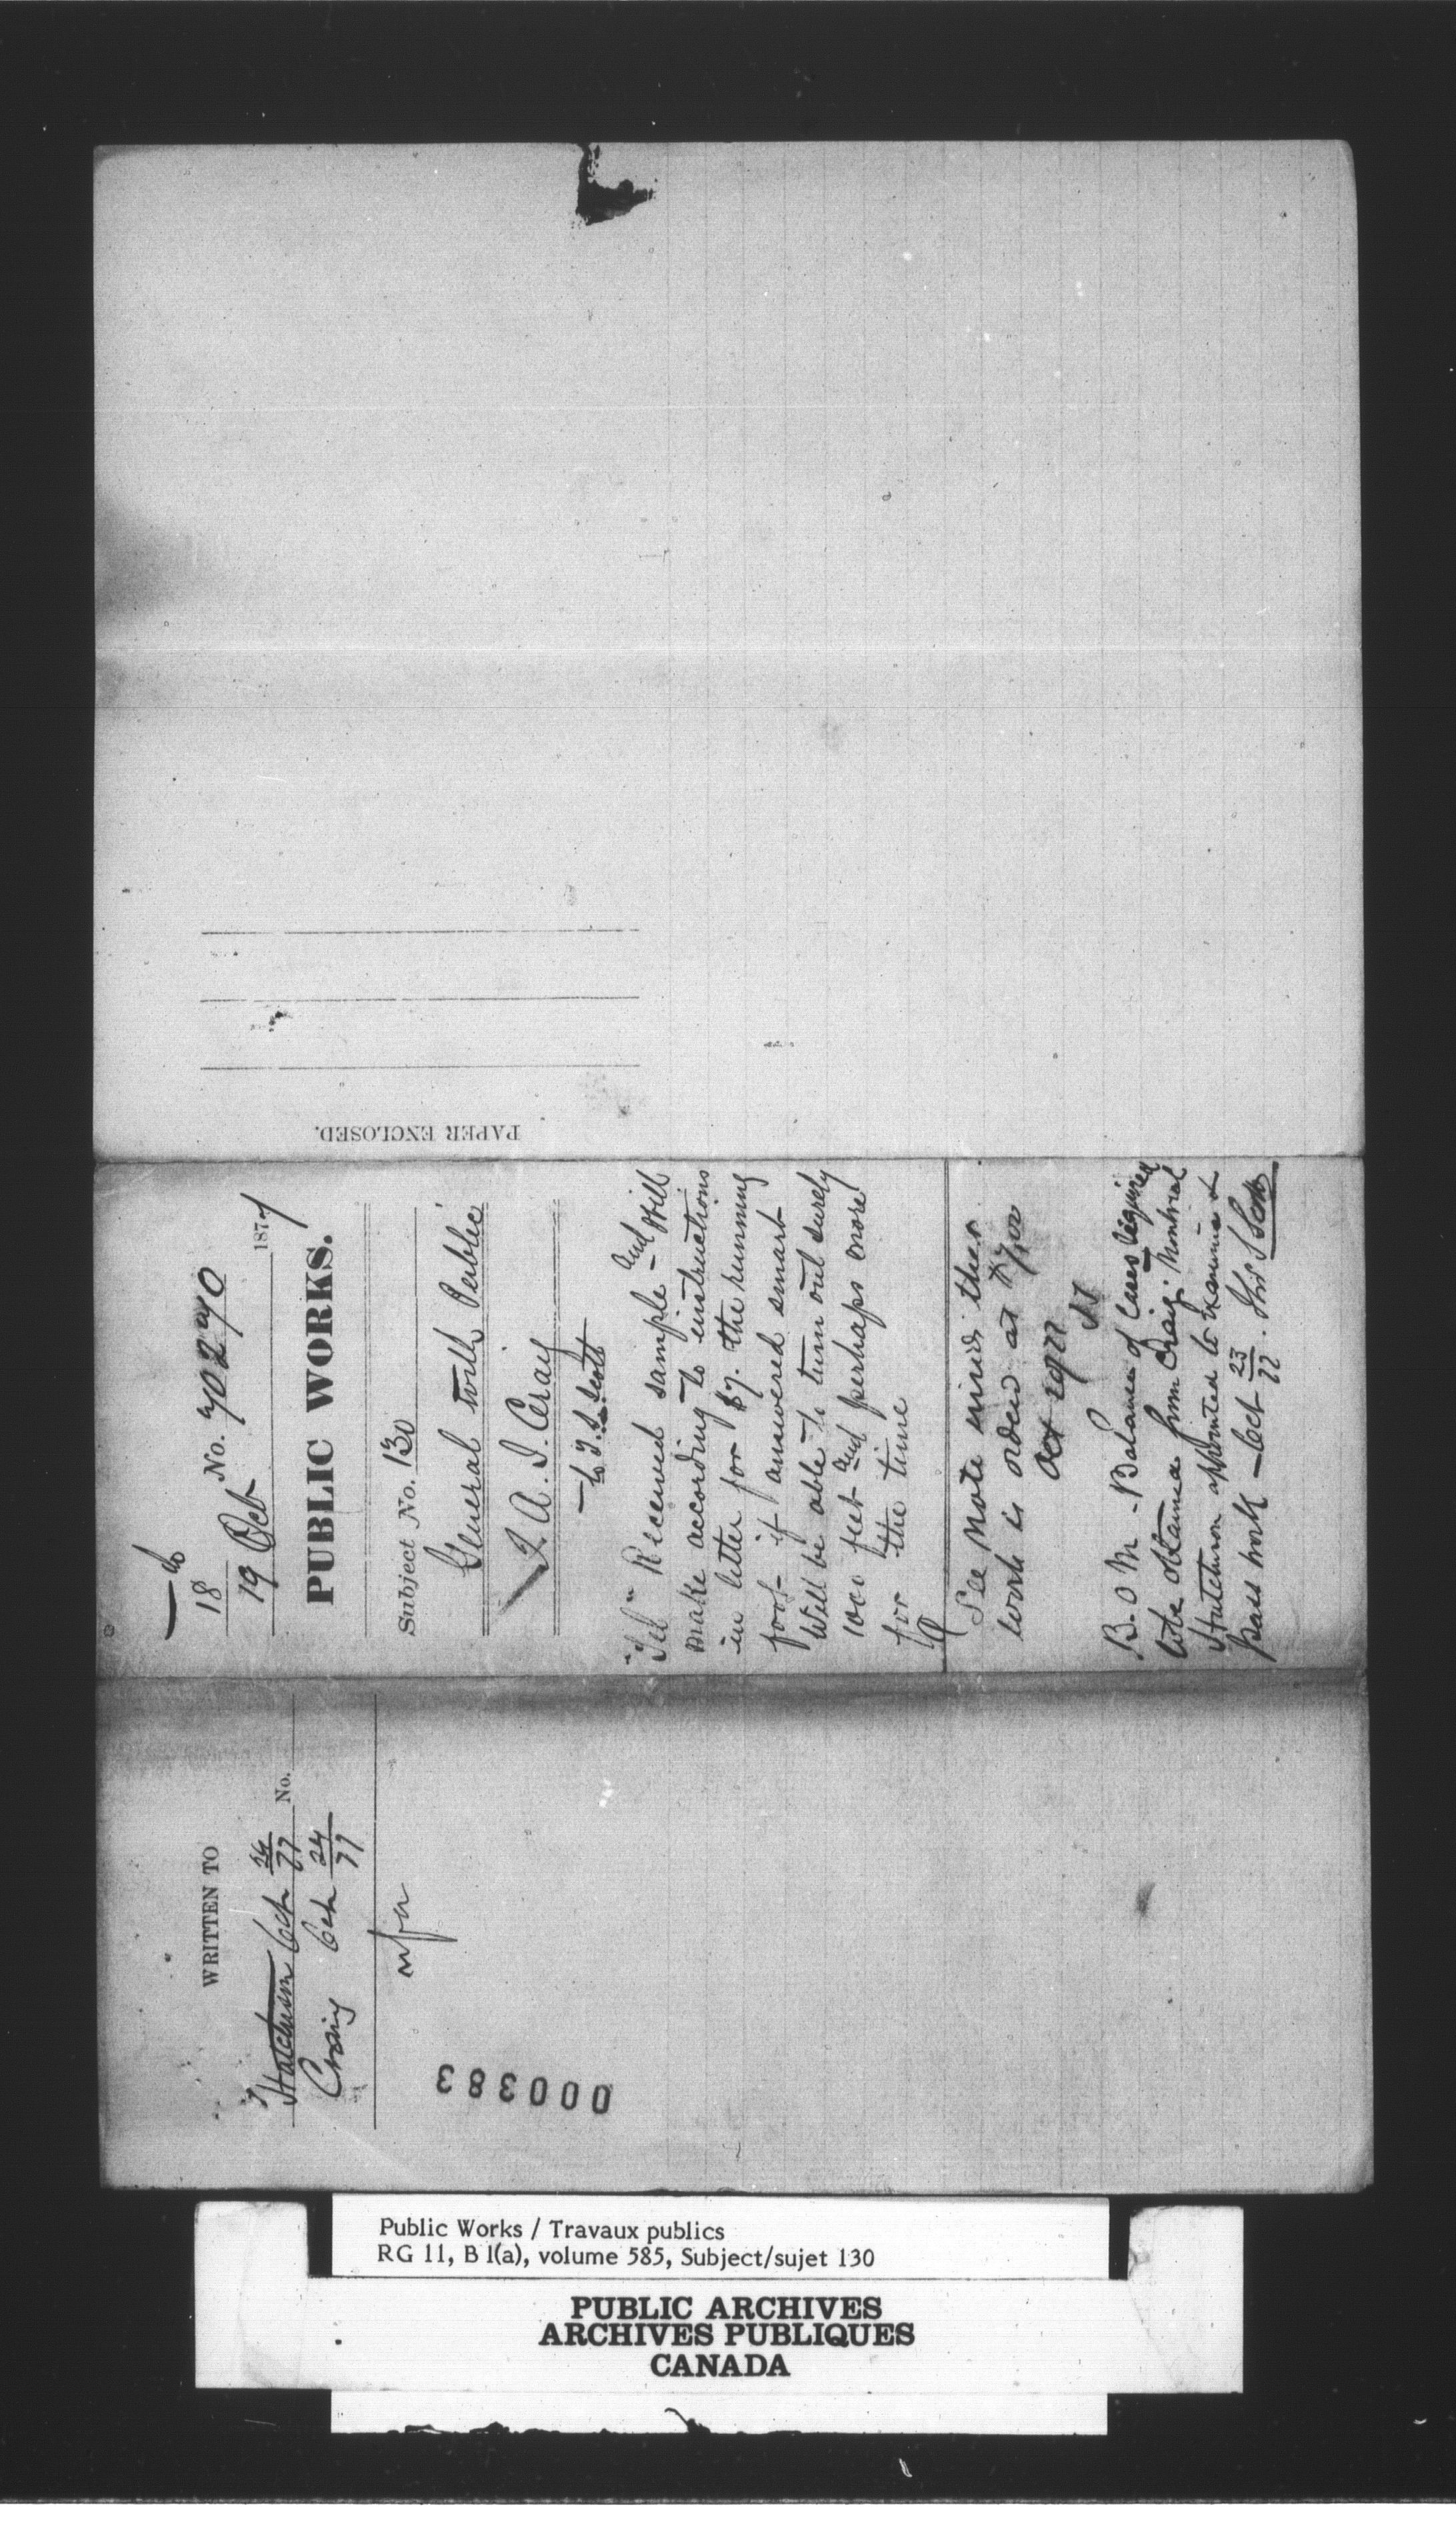 18
19 Oct No. 70270 1877
PUBLIC WORKS.
Subject No. 130
General with Public
F. A. I. Craig
to T. S. Scott
"Tel" Received sample and will
make according to instructions
in letter for $7. the running
foot if answered smart
Will be able to turn out surely
1000 feet and perhaps more
for the time
See note within then
work is ordered at $7.00
Oct 1977
B. O M - Balance of Cases required
to be obtained from Craig Montreal
Hutchison appointed to examine &
pass work - Oct 23/77. Thos S Scott
PAPER ENCLOSED.
WRITTEN TO
Hutchison Oct 24/77 No.
Craig Oct 24/77
000383
Public Works / Travaux publics
RG 11, B 1(a), volume 585, Subject/sujet 130
PUBLIC ARCHIVES
ARCHIVES PUBLIQUES
CANADA